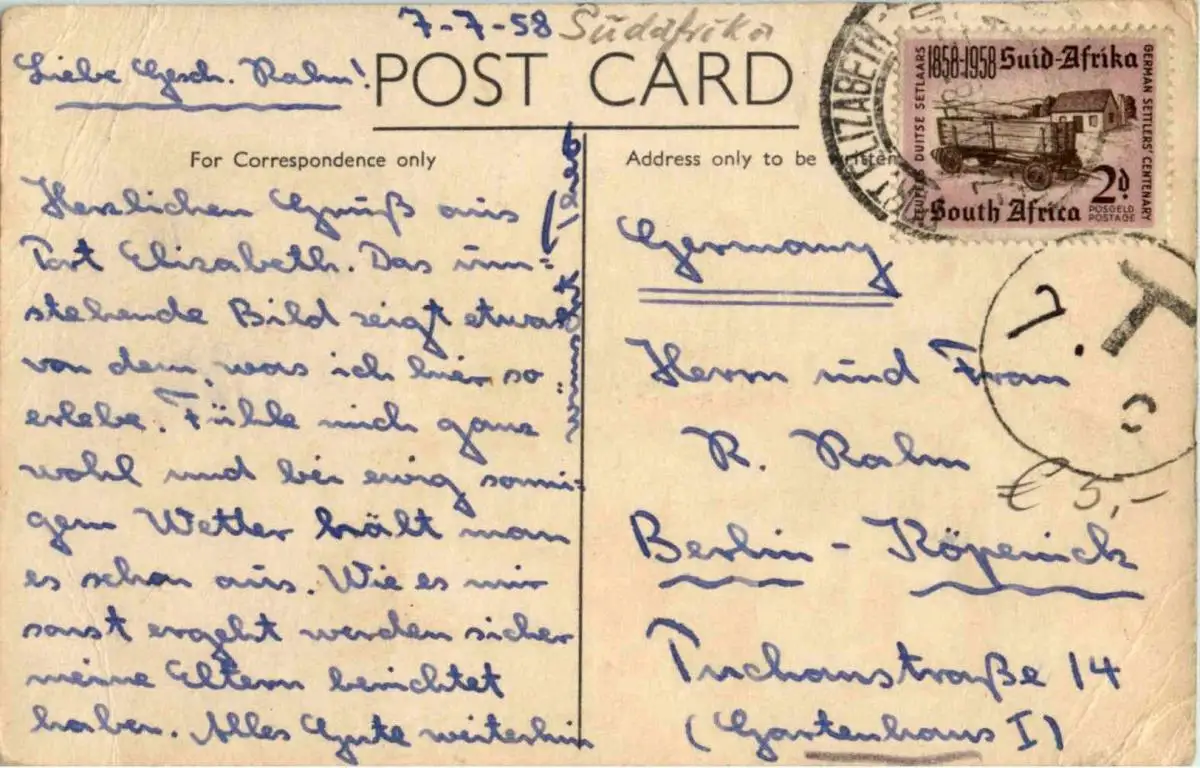 7-7-58 Südafrika
Liebe Gesch. Rahm!
POST CARD
For Correspondence only
Herzlichen Gruß aus
Port Elizabeth. Das um-
stehende Bild zeigt etwas
von dem, was ich hier so
erlebe. Fühle mich ganz
wohl und bei ewig sonni-
gem Wetter hält man
es schon aus. Wie es mir
sonst ergeht werden sicher
meine Eltern berichtet
haben. Alles Gute weiterhin
wünscht
Address only to be written
Germany
Herrn und Frau
R. Rahm
Berlin - Köpenick
Puchanstraße 14
(Gartenhaus I)
1858-1958 Suid-Afrika
DUITSE SETLAARS
GERMAN SETTLERS' CENTENARY
2d
POSGELD
POSTAGE
South Africa
ELIZABETH
T
€ 5,-